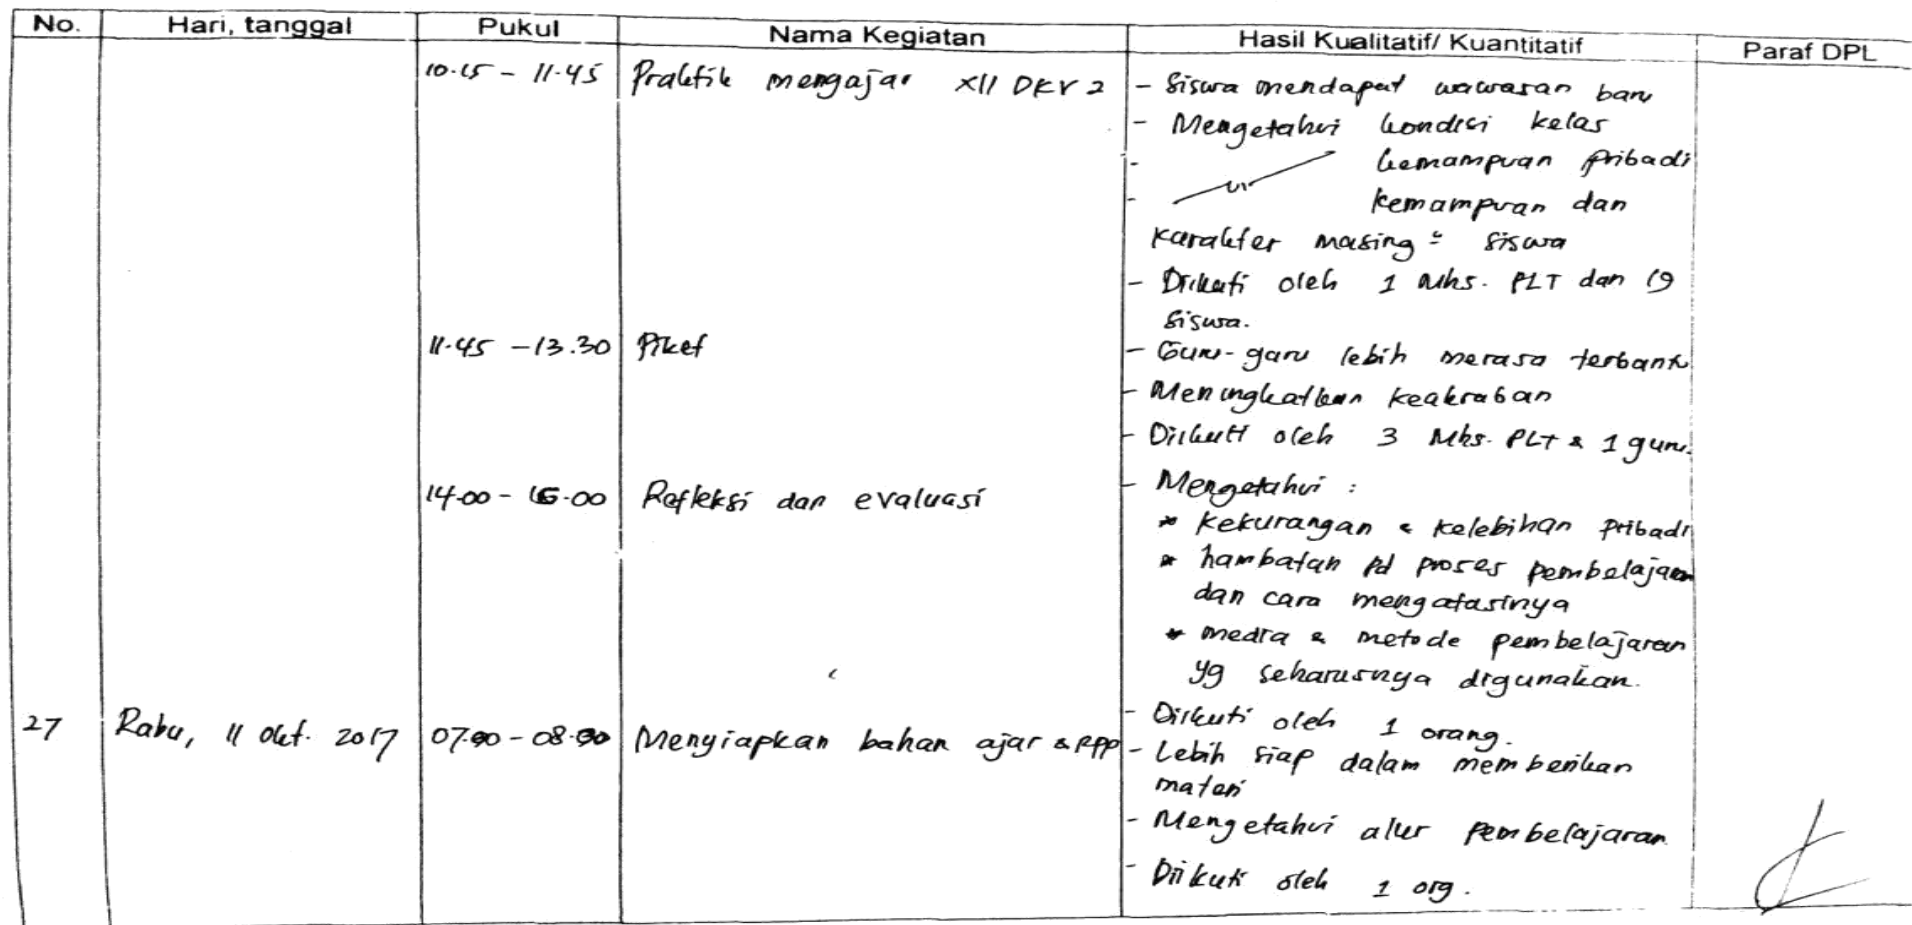 No. Hari, tanggal Pukul Nama Kegiatan Hasil Kualitatif/ Kuantitatif Paraf DPL
10.15 - 11.45 Praktik mengajar XII DKV 2 - Siswa mendapat wawasan baru
- Mengetahui kondisi kelas
- kemampuan pribadi
- kemampuan dan
karakter masing² siswa
- Diikuti oleh 1 Mhs. PLT dan 19
siswa.
11.45 - 13.30 Piket - Guru-guru lebih merasa terbantu
- Meningkatkan keakraban
- Diikuti oleh 3 Mhs. PLT & 1 guru.
14.00 - 16.00 Refleksi dan evaluasi - Mengetahui :
* kekurangan & kelebihan pribadi
* hambatan pd proses pembelajaran
dan cara mengatasinya
* media & metode pembelajaran
yg seharusnya digunakan.
- Diikuti oleh 1 orang.
27 Rabu, 11 Okt. 2017 07.00 - 08.00 Menyiapkan bahan ajar & RPP - Lebih siap dalam memberikan
materi
- Mengetahui alur pembelajaran.
- Diikuti oleh 1 org.